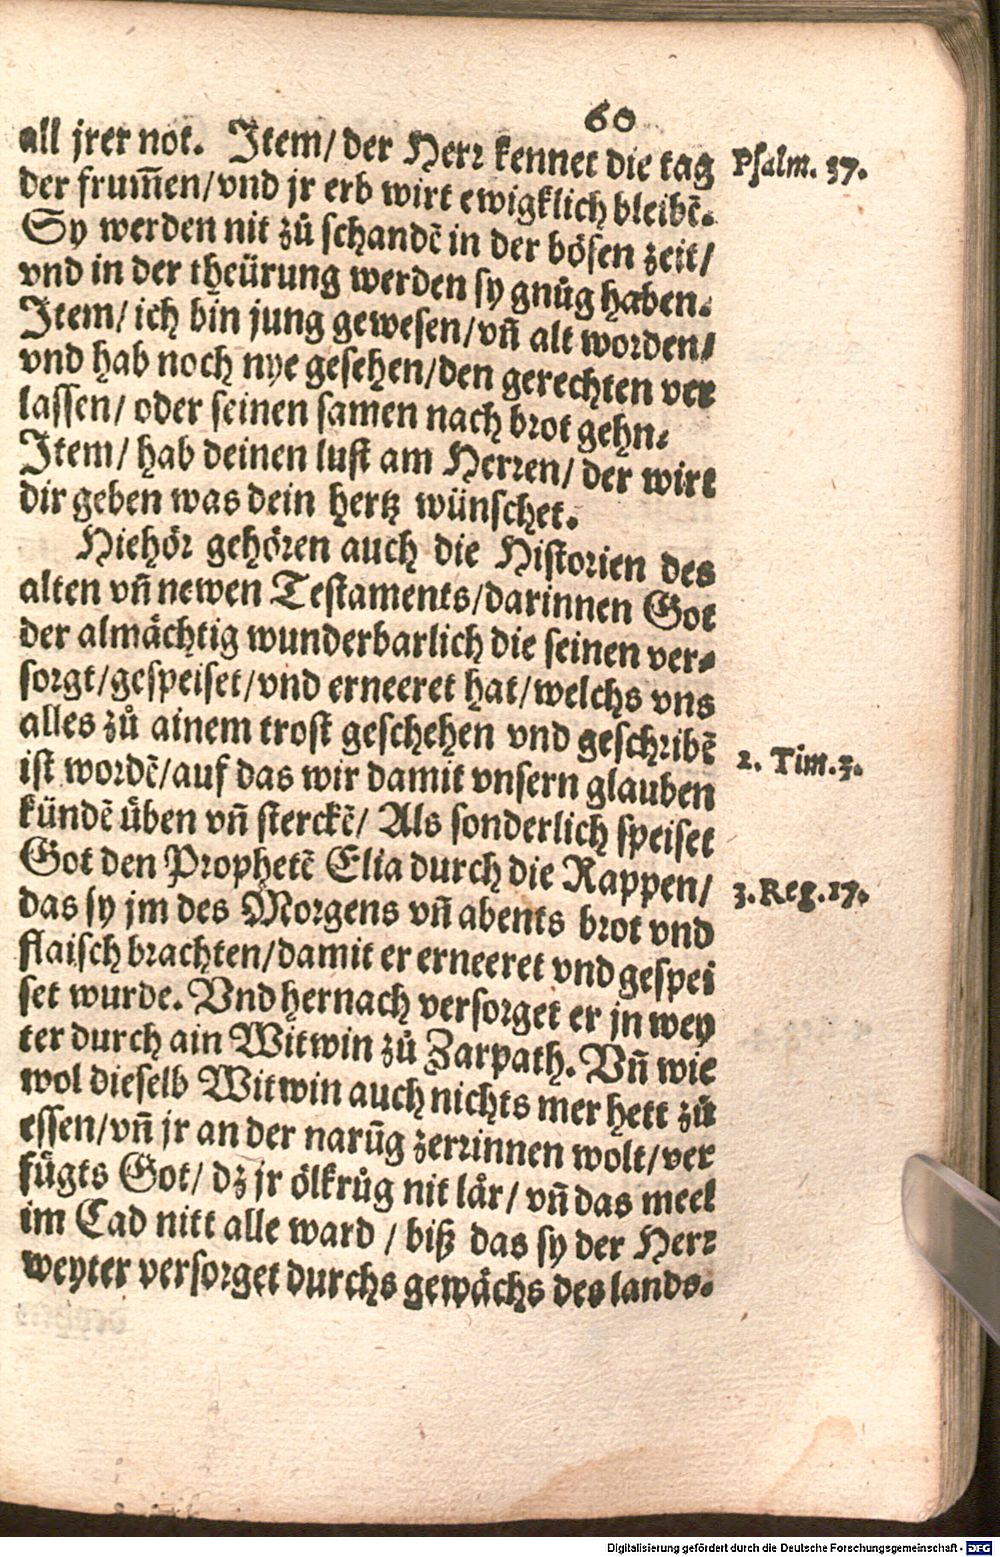 60
all jrer not. Item/ der Herr kennet die tag
Psalm. 37.
der frum̃en/vnd jr erb wirt ewigklich bleibẽ.
Sy werden nit zů schandẽ in der bösen zeit/
vnd in der theürung werden sy gnůg haben.
Item/ ich bin jung gewesen/vñ alt worden/
vnd hab noch nye gesehen/den gerechten ver
lassen/ oder seinen samen nach brot gehn.
Item/ hab deinen lust am Herren/ der wirt
dir geben was dein hertz wünschet.
Hiehör gehören auch die Historien des
alten vñ newen Testaments/darinnen Got
der almächtig wunderbarlich die seinen ver-
sorgt/gespeiset/vnd erneeret hat/welchs vns
alles zů ainem trost geschehen vnd geschribẽ
2. Tim. 3.
ist wordẽ/auf das wir damit vnsern glauben
kündẽ üben vñ sterckẽ/ Als sonderlich speiset
Got den Prophetẽ Elia durch die Rappen/
3. Reg. 17.
das sy jm des Morgens vñ abents brot vnd
flaisch brachten/damit er erneeret vnd gespei
set wurde. Vnd hernach versorget er jn wey
ter durch ain Witwin zů Zarpath. Vñ wie
wol dieselb Witwin auch nichts mer hett zů
essen/vñ jr an der narũg zerrinnen wolt/ver
fügts Got/ dz jr ölkrůg nit lär/ vñ das meel
im Cad nitt alle ward / biß das sy der Herr
weyter versorget durchs gewächs des lands.
Digitalisierung gefördert durch die Deutsche Forschungsgemeinschaft - DFG